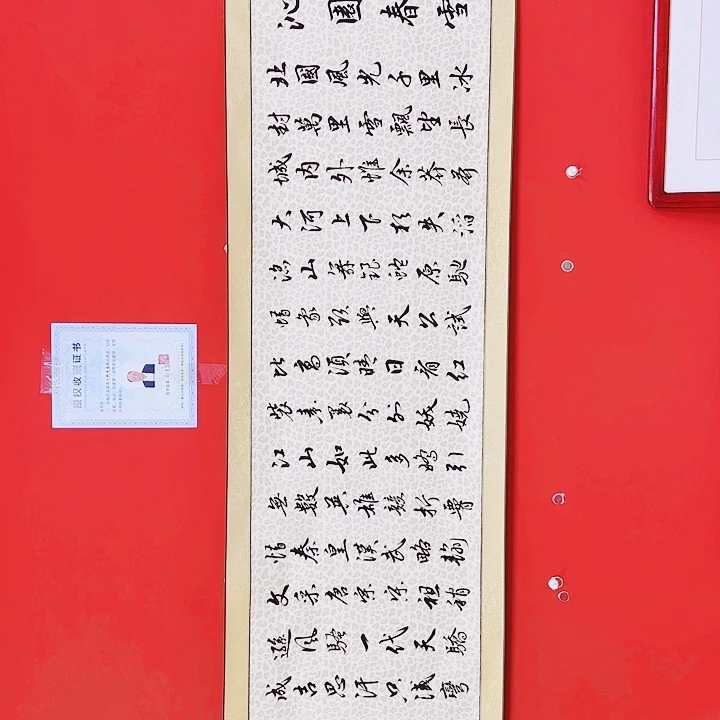 沁園春雪
北國風光千里冰
封萬里雪飄望長
城内外惟余莽莽
大河上下頓失滔
滔山舞銀蛇原馳
蠟象欲與天公試
比高須晴日看紅
裝素裹分外妖嬈
江山如此多嬌引
無數英雄競折腰
惜秦皇漢武略輸
文采唐宗宋祖稍
遜風騷一代天驕
成吉思汗只識彎
授权收藏证书